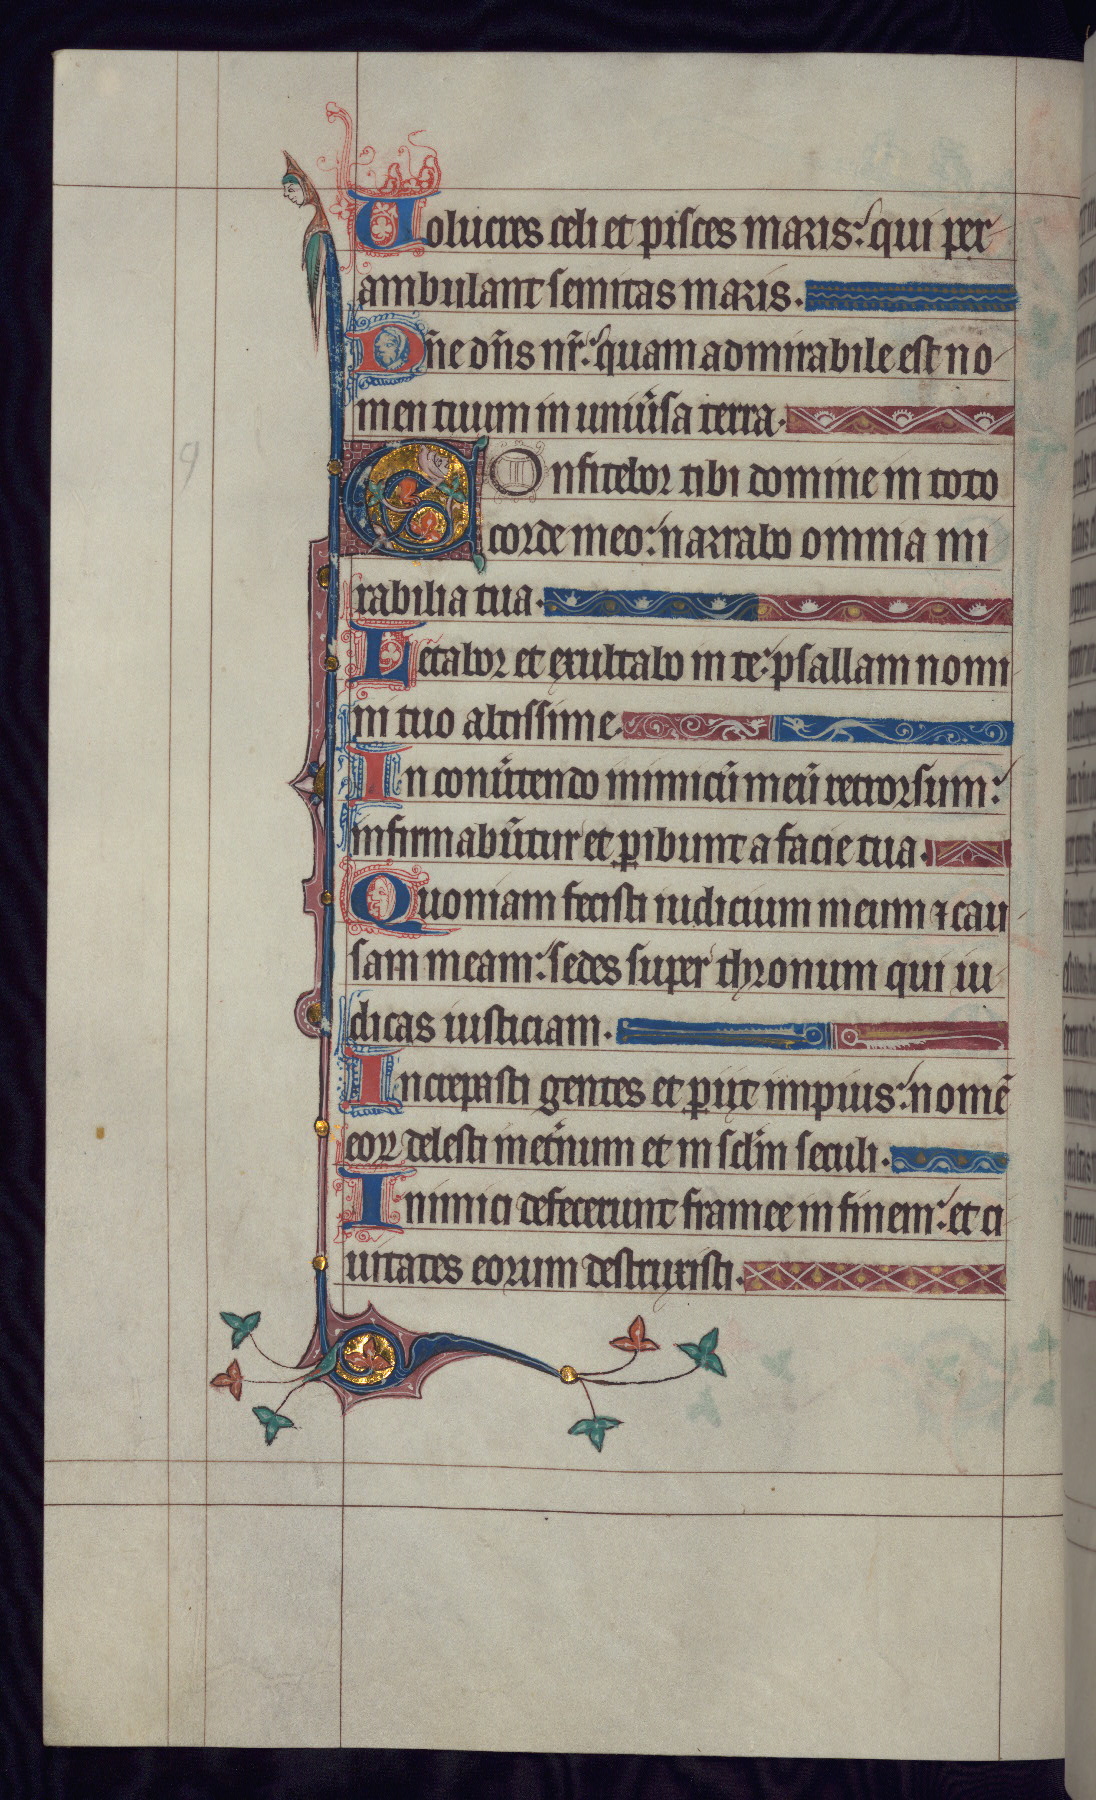 Uolucres celi et pisces maris: qui per
ambulant semitas maris.
Dn̄e dn̄s nr̄: quam admirabile est no
men tuum in uniūsa terra.
9 COnfitebor tibi domine in toto
corde meo: narrabo omnia mi
rabilia tua.
Letabor et exultabo in te: psallam nomi
ni tuo altissime.
In conūtendo inimicū meū retrorsum:
infirmabūtur et ꝑibunt a facie tua.
Quoniam fecisti iudicium meum ⁊ cau
sam meam: sedes super thronum qui iu
dicas iusticiam.
Increpasti gentes et ꝑiit impius: nomē
eoꝝ delesti inet̄num et in sclm̄ seculi.
Inimici defecerunt framee in finem: et ci
uitates eorum destruxisti.